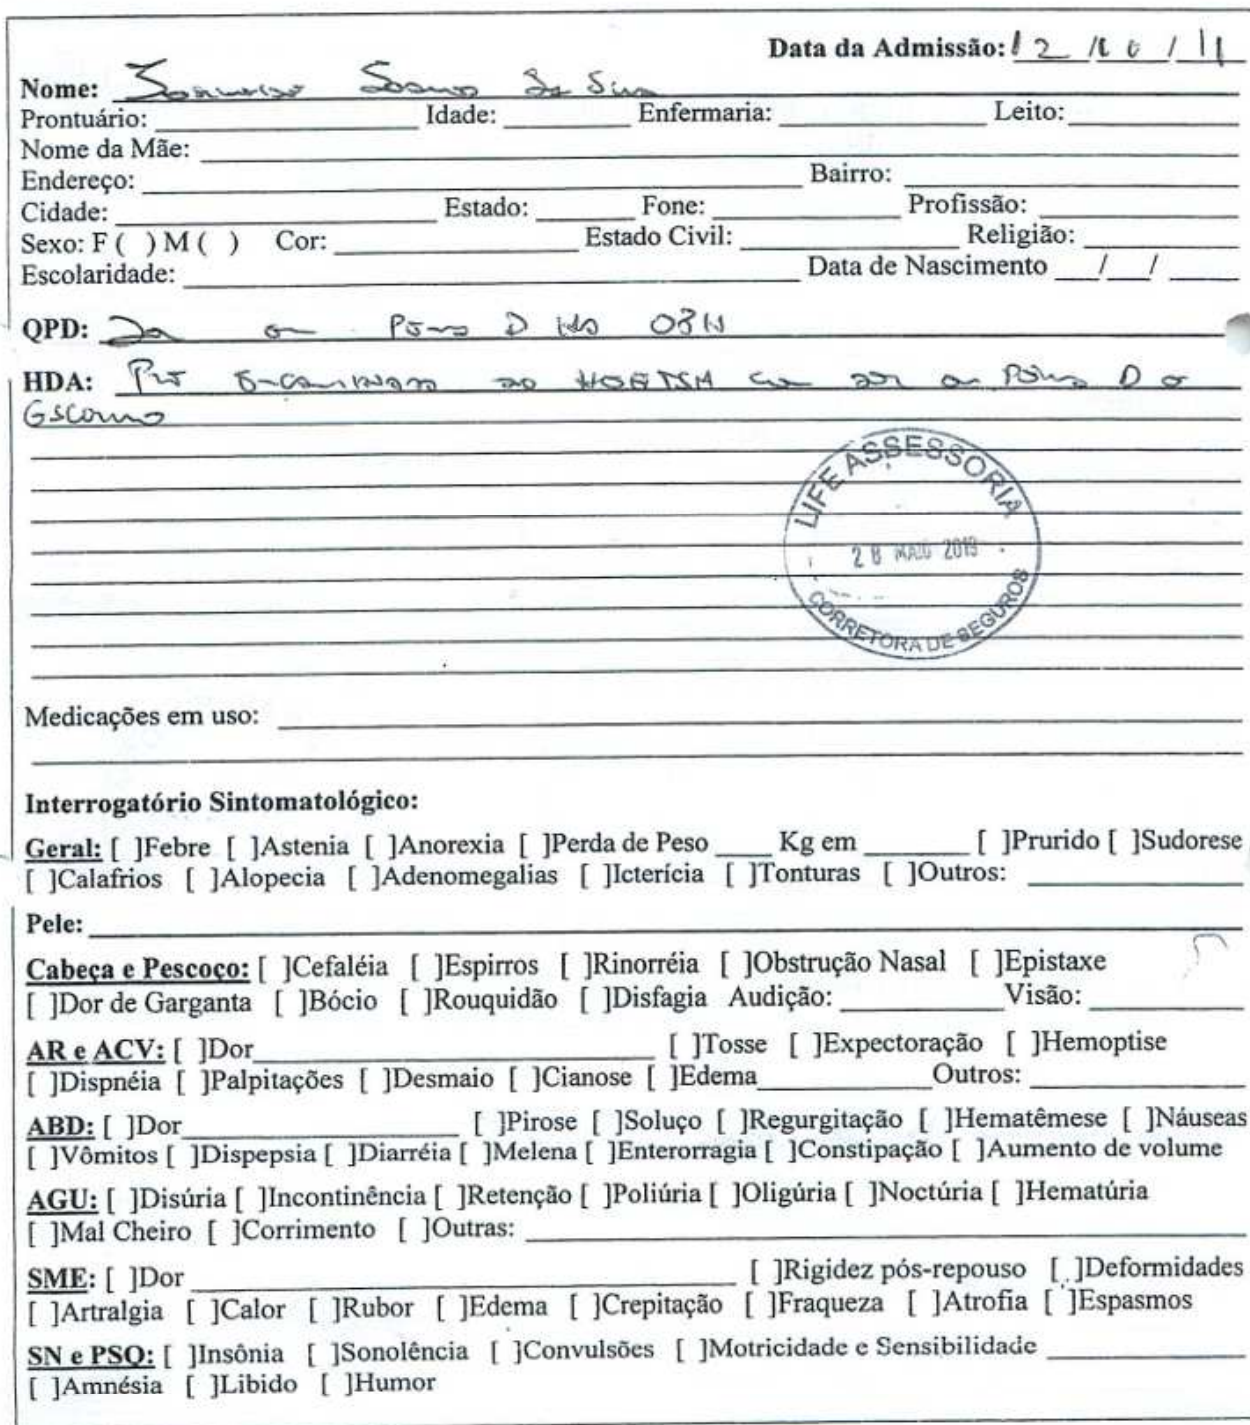 Data da Admissão: 12 /10 / 11
Nome: da Silva
Prontuário: Idade: Enfermaria: Leito:
Nome da Mãe:
Endereço: Bairro:
Cidade: Estado: Fone: Profissão:
Sexo: F ( ) M ( ) Cor: Estado Civil: Religião:
Escolaridade: Data de Nascimento / /
QPD: D Há 03H
HDA: ao com dor em D e
LIFE ASSESSORIA
28 MAIO 2019
CORRETORA DE SEGUROS
Medicações em uso:
Interrogatório Sintomatológico:
Geral: [ ]Febre [ ]Astenia [ ]Anorexia [ ]Perda de Peso Kg em [ ]Prurido [ ]Sudorese
[ ]Calafrios [ ]Alopecia [ ]Adenomegalias [ ]Icterícia [ ]Tonturas [ ]Outros:
Pele:
Cabeça e Pescoço: [ ]Cefaléia [ ]Espirros [ ]Rinorréia [ ]Obstrução Nasal [ ]Epistaxe
[ ]Dor de Garganta [ ]Bócio [ ]Rouquidão [ ]Disfagia Audição: Visão:
AR e ACV: [ ]Dor [ ]Tosse [ ]Expectoração [ ]Hemoptise
[ ]Dispnéia [ ]Palpitações [ ]Desmaio [ ]Cianose [ ]Edema Outros:
ABD: [ ]Dor [ ]Pirose [ ]Soluço [ ]Regurgitação [ ]Hematêmese [ ]Náuseas
[ ]Vômitos [ ]Dispepsia [ ]Diarréia [ ]Melena [ ]Enterorragia [ ]Constipação [ ]Aumento de volume
AGU: [ ]Disúria [ ]Incontinência [ ]Retenção [ ]Poliúria [ ]Oligúria [ ]Noctúria [ ]Hematúria
[ ]Mal Cheiro [ ]Corrimento [ ]Outras:
SME: [ ]Dor [ ]Rigidez pós-repouso [ ]Deformidades
[ ]Artralgia [ ]Calor [ ]Rubor [ ]Edema [ ]Crepitação [ ]Fraqueza [ ]Atrofia [ ]Espasmos
SN e PSQ: [ ]Insônia [ ]Sonolência [ ]Convulsões [ ]Motricidade e Sensibilidade
[ ]Amnésia [ ]Libido [ ]Humor